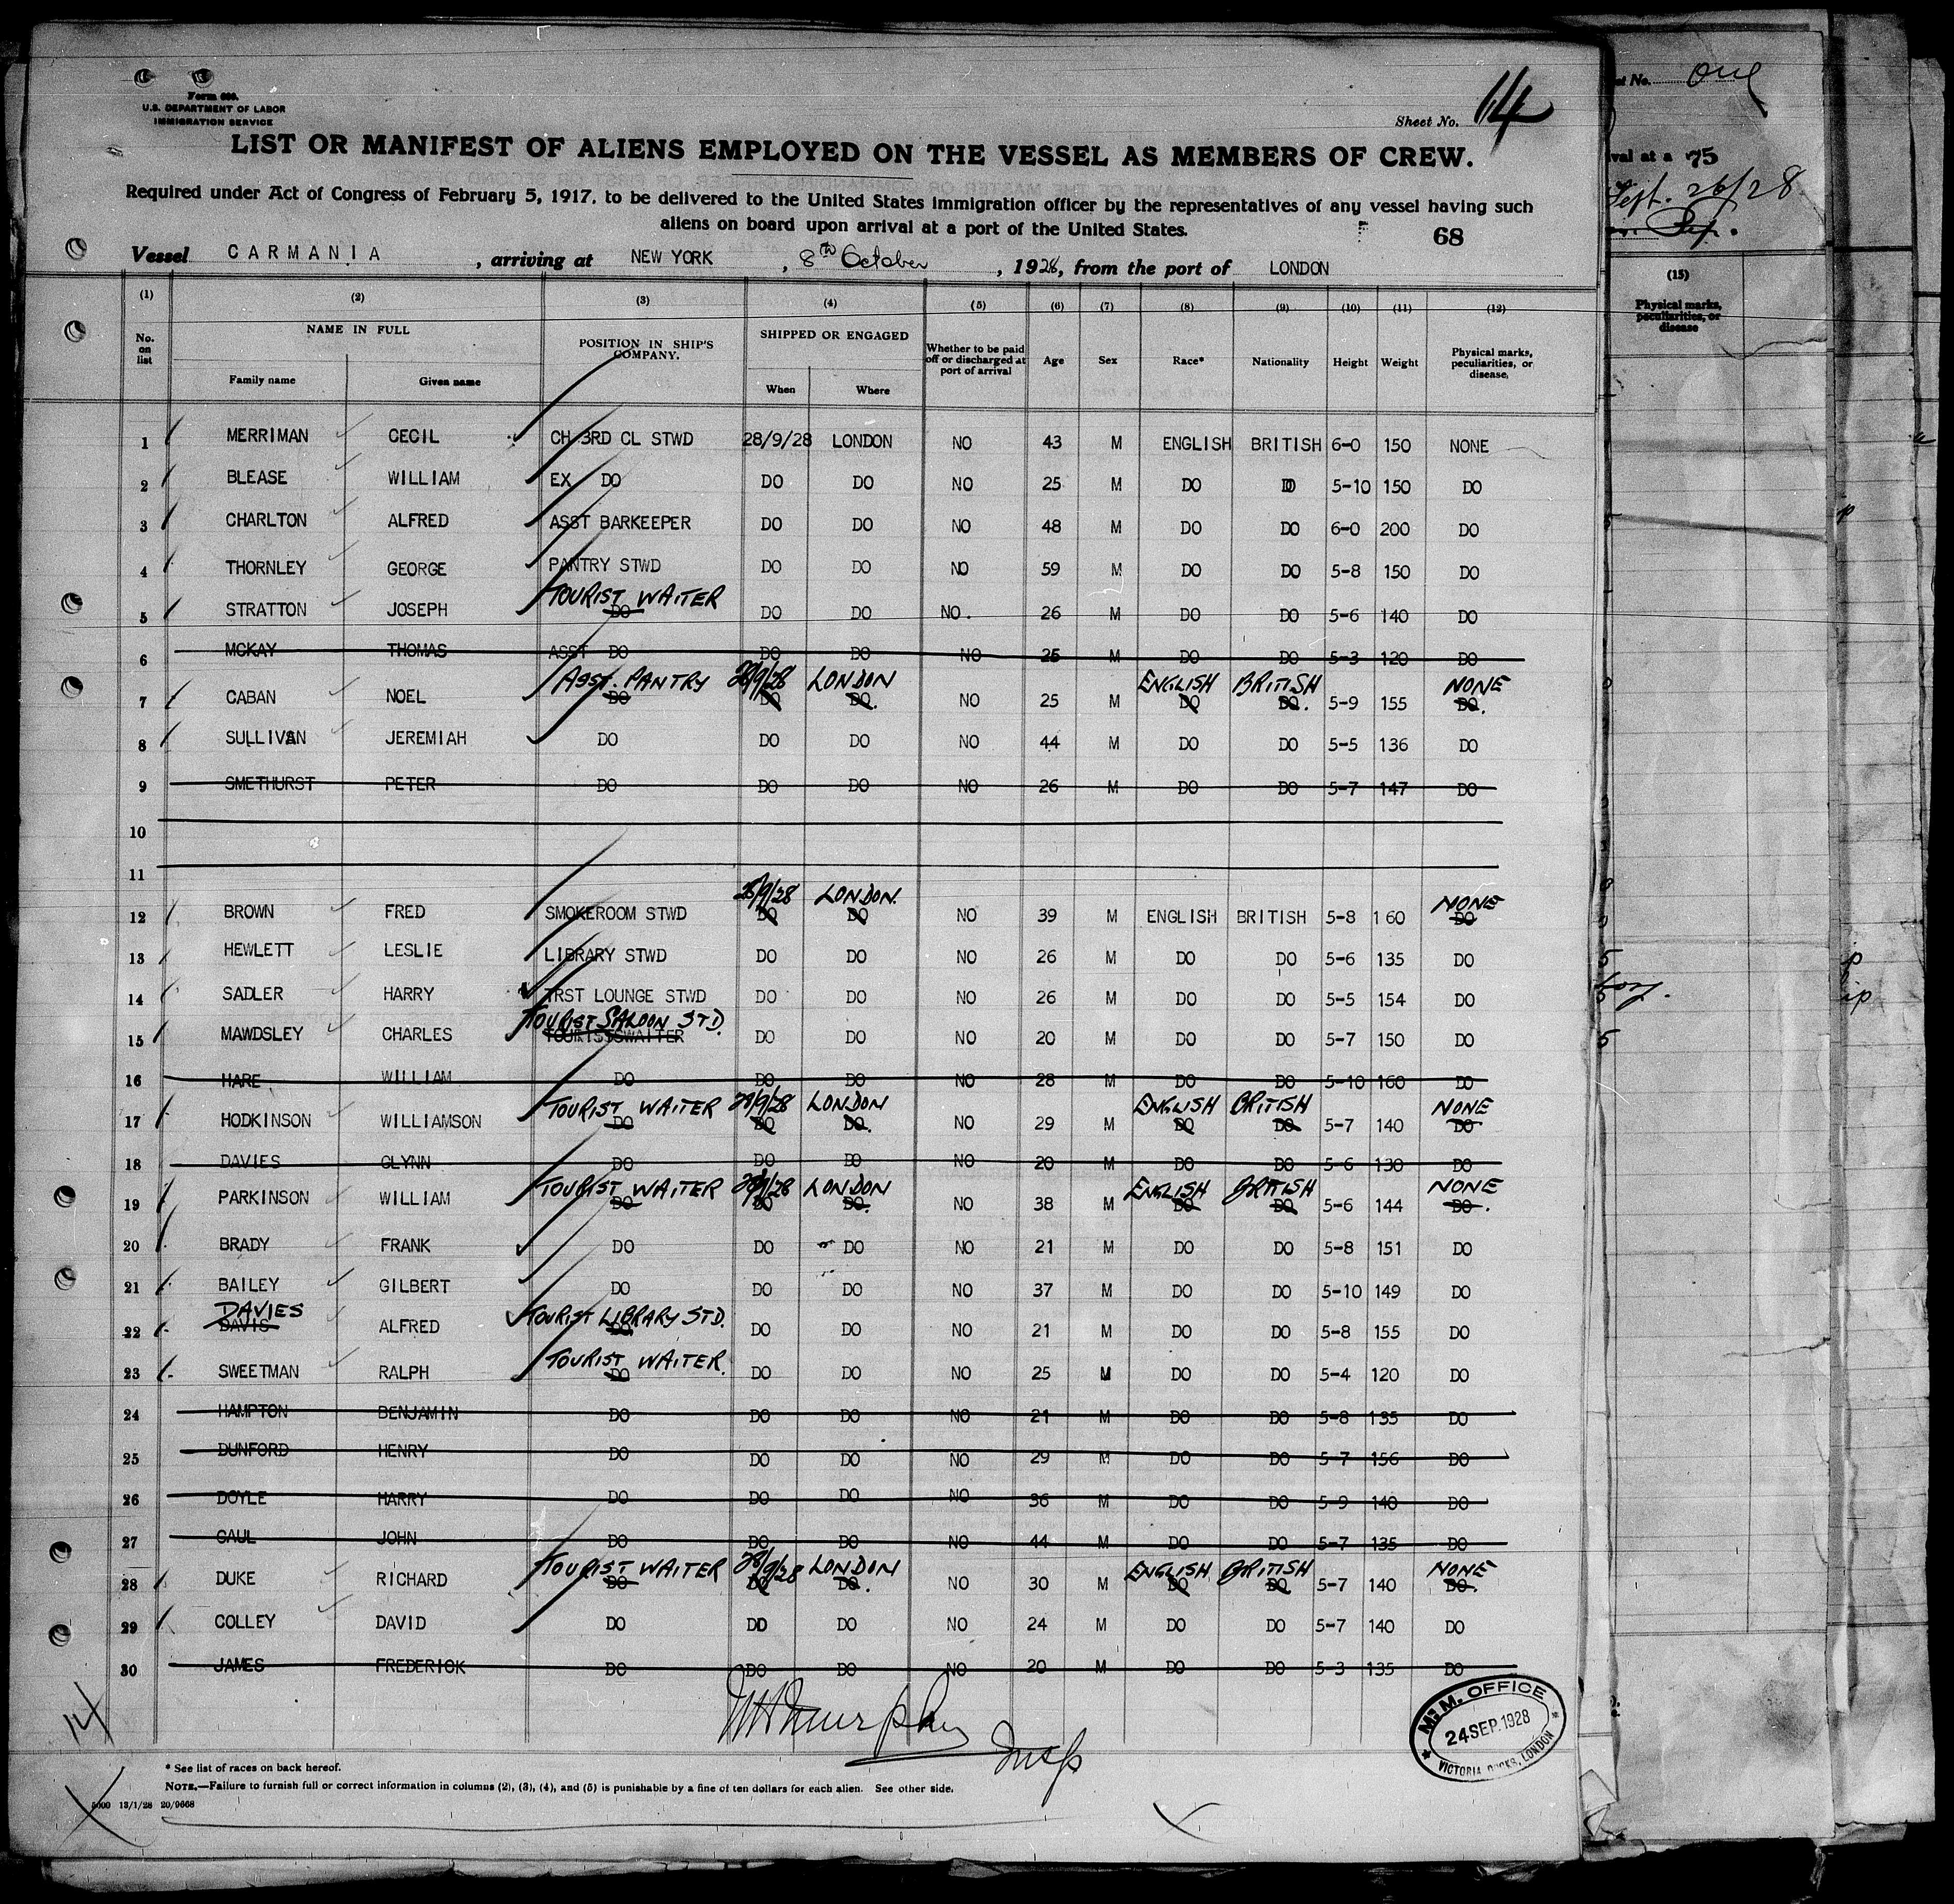 Form 680.
U.S. DEPARTMENT OF LABOR
IMMIGRATION SERVICE
Sheet No. 14
LIST OR MANIFEST OF ALIENS EMPLOYED ON THE VESSEL AS MEMBERS OF CREW.
Required under Act of Congress of February 5, 1917, to be delivered to the United States immigration officer by the representatives of any vessel having such
aliens on board upon arrival at a port of the United States.
68
Vessel CARMANIA, arriving at NEW YORK, 8th October, 1928, from the port of LONDON
(1) (2) (3) (4) (5) (6) (7) (8) (9) (10) (11) (12)
No. on list NAME IN FULL Family name Given name POSITION IN SHIP'S COMPANY. SHIPPED OR ENGAGED When Where Whether to be paid off or discharged at port of arrival Age Sex Race* Nationality Height Weight Physical marks, peculiarities, or disease.
1 MERRIMAN CECIL CH 3RD CL STWD 28/9/28 LONDON NO 43 M ENGLISH BRITISH 6-0 150 NONE
2 BLEASE WILLIAM EX DO DO DO NO 25 M DO DO 5-10 150 DO
3 CHARLTON ALFRED ASST BARKEEPER DO DO NO 48 M DO DO 6-0 200 DO
4 THORNLEY GEORGE PANTRY STWD DO DO NO 59 M DO DO 5-8 150 DO
TOURIST WAITER
5 STRATTON JOSEPH DO DO DO NO. 26 M DO DO 5-6 140 DO
6 MCKAY THOMAS ASST DO DO DO NO 25 M DO DO 5-3 120 DO
ASST. PANTRY 28/9/28 LONDON ENGLISH BRITISH NONE
7 CABAN NOEL DO DO DO. NO 25 M DO DO. 5-9 155 DO.
8 SULLIVAN JEREMIAH DO DO DO NO 44 M DO DO 5-5 136 DO
9 SMETHURST PETER DO DO DO NO 26 M DO DO 5-7 147 DO
10
11
28/9/28 LONDON. NONE
12 BROWN FRED SMOKEROOM STWD DO DO NO 39 M ENGLISH BRITISH 5-8 160 DO
13 HEWLETT LESLIE LIBRARY STWD DO DO NO 26 M DO DO 5-6 135 DO
14 SADLER HARRY TRST LOUNGE STWD DO DO NO 26 M DO DO 5-5 154 DO
TOURIST SALOON STD.
15 MAWDSLEY CHARLES TOURISTSWAITER DO DO NO 20 M DO DO 5-7 150 DO
16 HARE WILLIAM DO DO DO NO 28 M DO DO 5-10 160 DO
TOURIST WAITER 28/9/28 LONDON ENGLISH BRITISH NONE
17 HODKINSON WILLIAMSON DO DO DO. NO 29 M DO DO 5-7 140 DO
18 DAVIES GLYNN DO DO DO NO 20 M DO DO 5-6 130 DO
TOURIST WAITER 28/9/28 LONDON ENGLISH BRITISH NONE
19 PARKINSON WILLIAM DO DO DO. NO 38 M DO DO 5-6 144 DO.
20 BRADY FRANK DO DO DO NO 21 M DO DO 5-8 151 DO
21 BAILEY GILBERT DO DO DO NO 37 M DO DO 5-10 149 DO
DAVIES TOURIST LIBRARY STD.
22 DAVIS ALFRED DO DO DO NO 21 M DO DO 5-8 155 DO
TOURIST WAITER.
23 SWEETMAN RALPH DO DO DO NO 25 M DO DO 5-4 120 DO
24 HAMPTON BENJAMIN DO DO DO NO 21 M DO DO 5-8 135 DO
25 DUNFORD HENRY DO DO DO NO 29 M DO DO 5-7 156 DO
26 DOYLE HARRY DO DO DO NO 36 M DO DO 5-9 140 DO
27 CAUL JOHN DO DO DO NO 44 M DO DO 5-7 135 DO
TOURIST WAITER 28/9/28 LONDON ENGLISH BRITISH NONE
28 DUKE RICHARD DO DO DO. NO 30 M DO DO 5-7 140 DO.
29 COLLEY DAVID DO DO DO NO 24 M DO DO 5-7 140 DO
30 JAMES FREDERICK DO DO DO NO 20 M DO DO 5-3 135 DO
Murphy
Insp
14
M.M. OFFICE
24 SEP. 1928
VICTORIA DOCKS, LONDON
* See list of races on back hereof.
NOTE.—Failure to furnish full or correct information in columns (2), (3), (4), and (5) is punishable by a fine of ten dollars for each alien. See other side.
5000 13/1/28 20/9668
No. One
val at a 75
Sept. 26/28
(15)
Physical marks,
peculiarities, or
disease